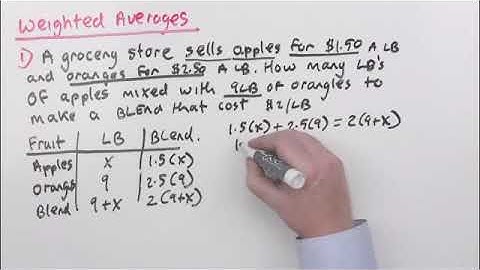 Weighted Averages
1) A grocery store sells apples for $1.50 A LB
and oranges for $2.50 A LB. How many LB's
of apples mixed with 9LB of orangles to
make a BLEND that cost $2/LB
Fruit LB BLend.
Apples x 1.5(x)
Orangs 9 2.5(9)
Blend 9+x 2(9+x)
1.5(x) + 2.5(9) = 2(9+x)